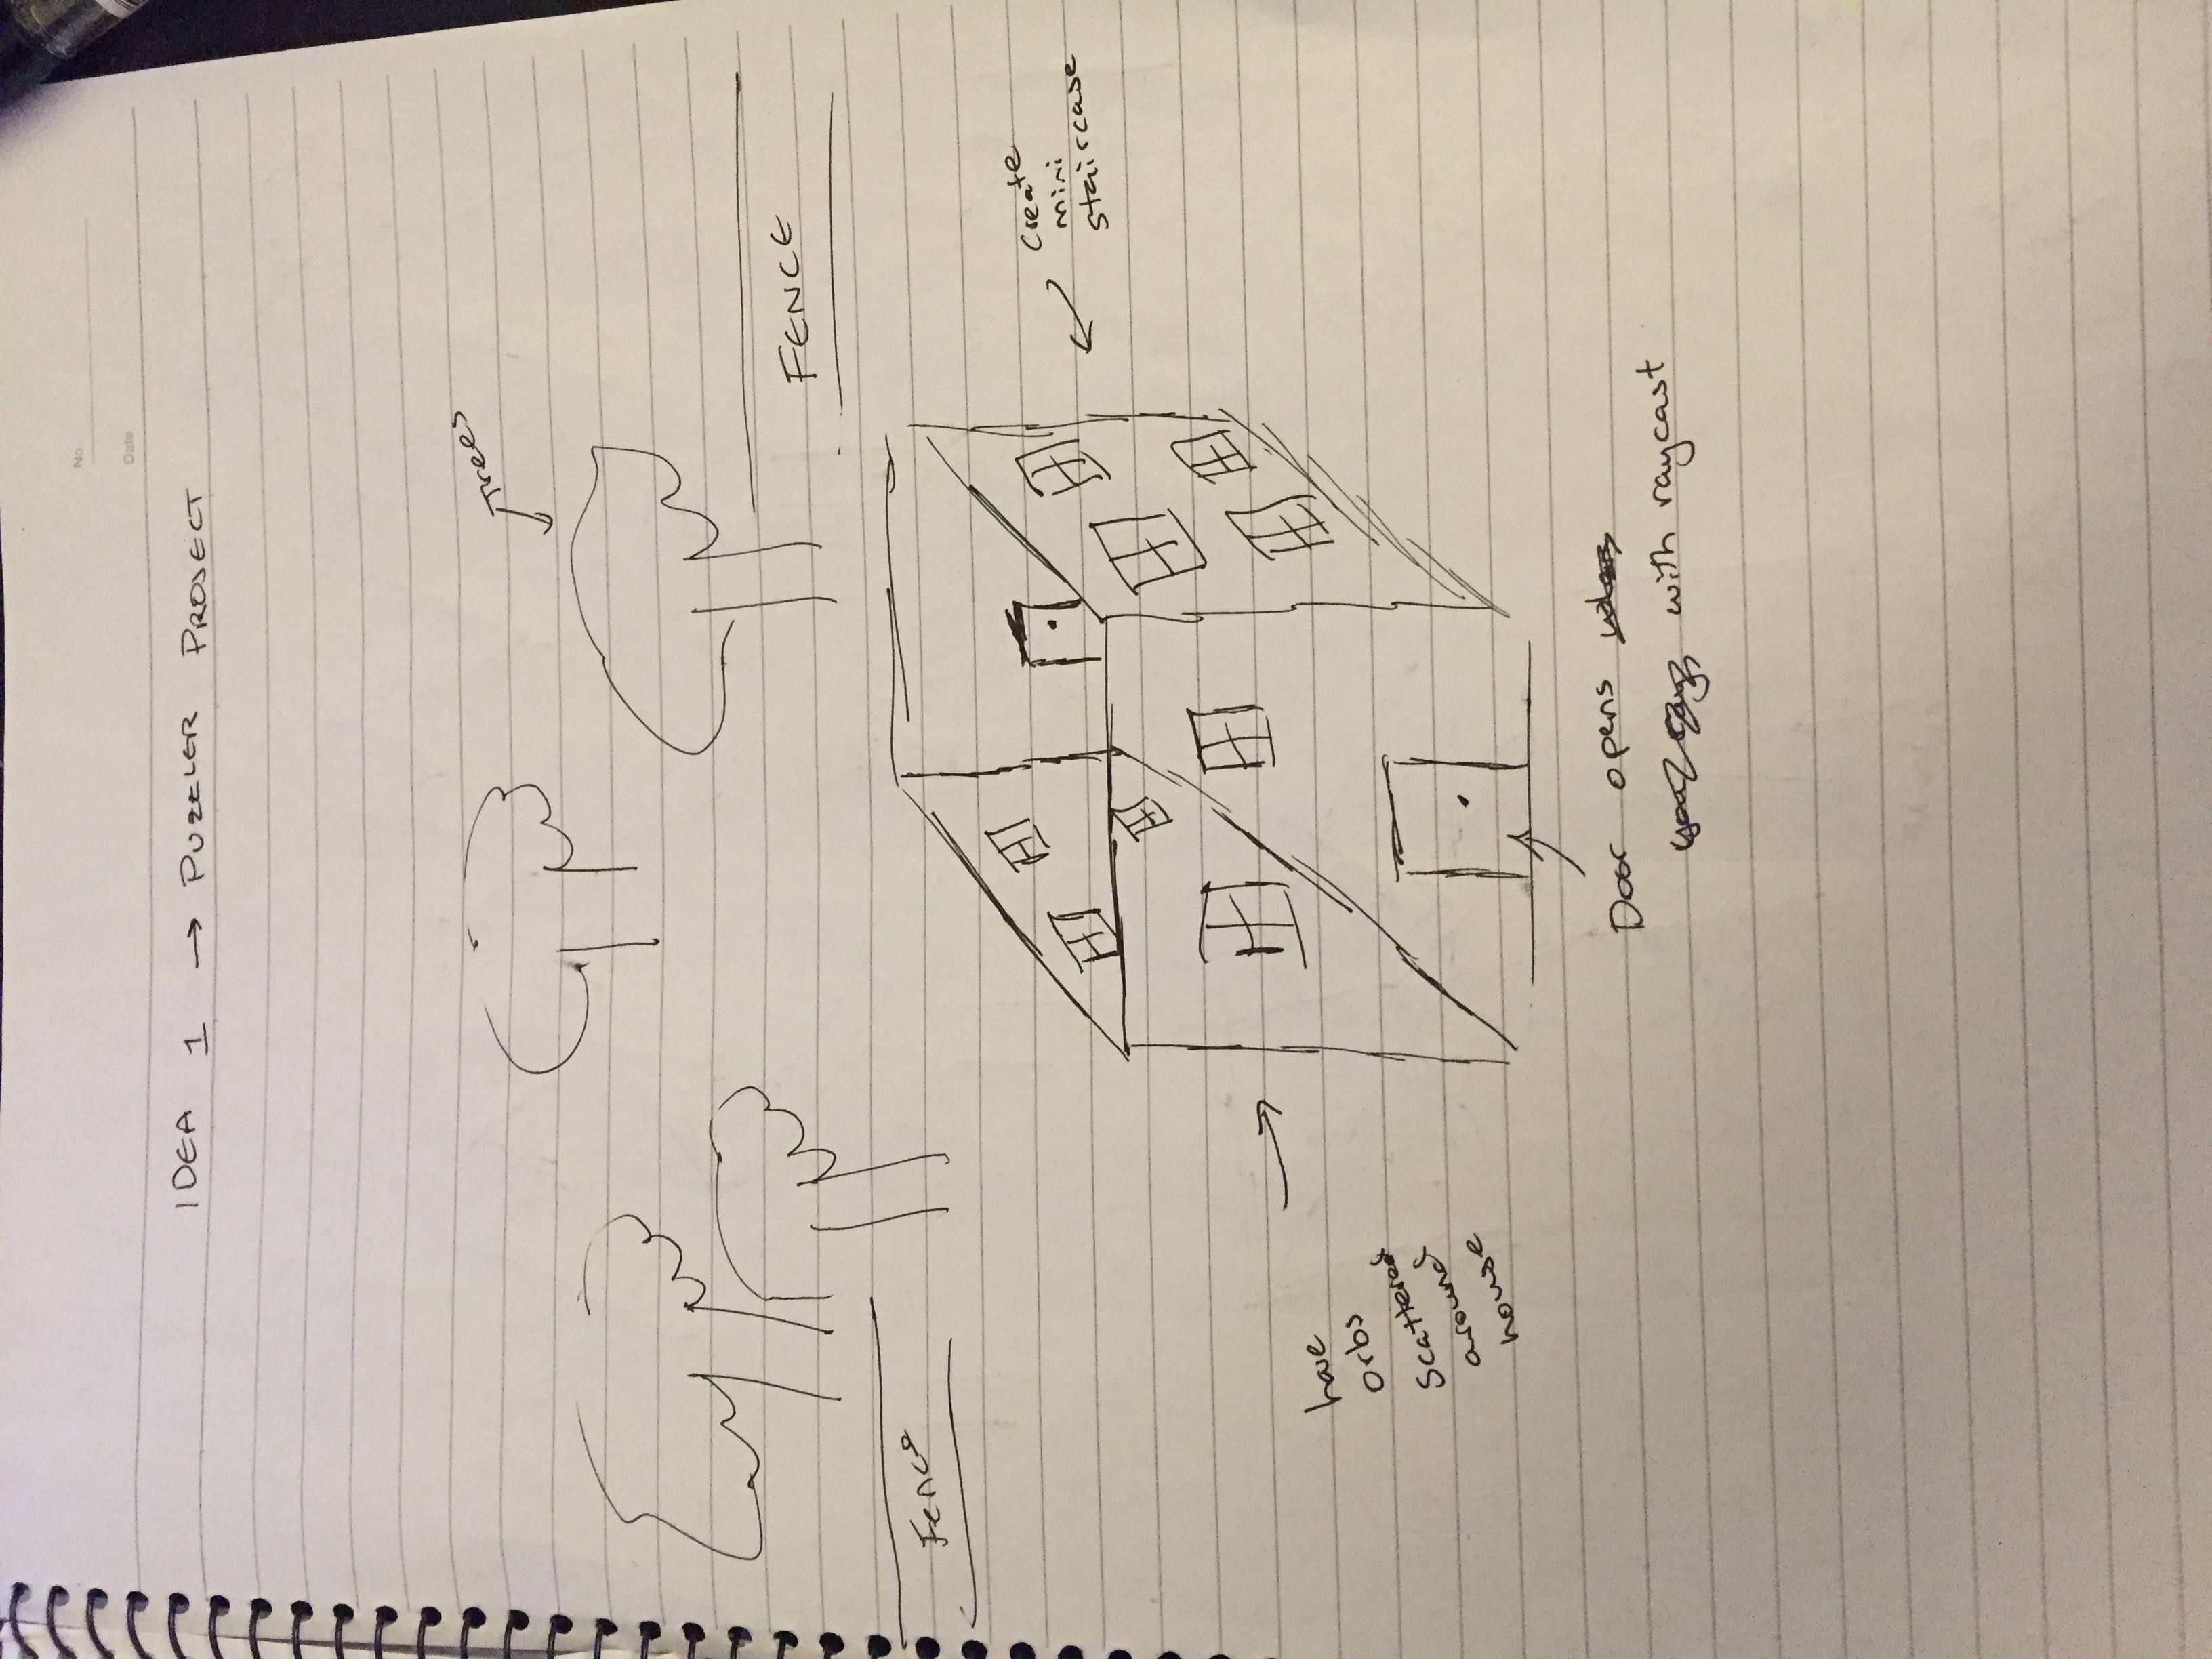 No.
Date
IDEA 1 → PUZZLER PROJECT
Trees
FENCE
Fence
Create
mini
staircase
have
orbs
Scattered
around
house
Door opens
with raycast